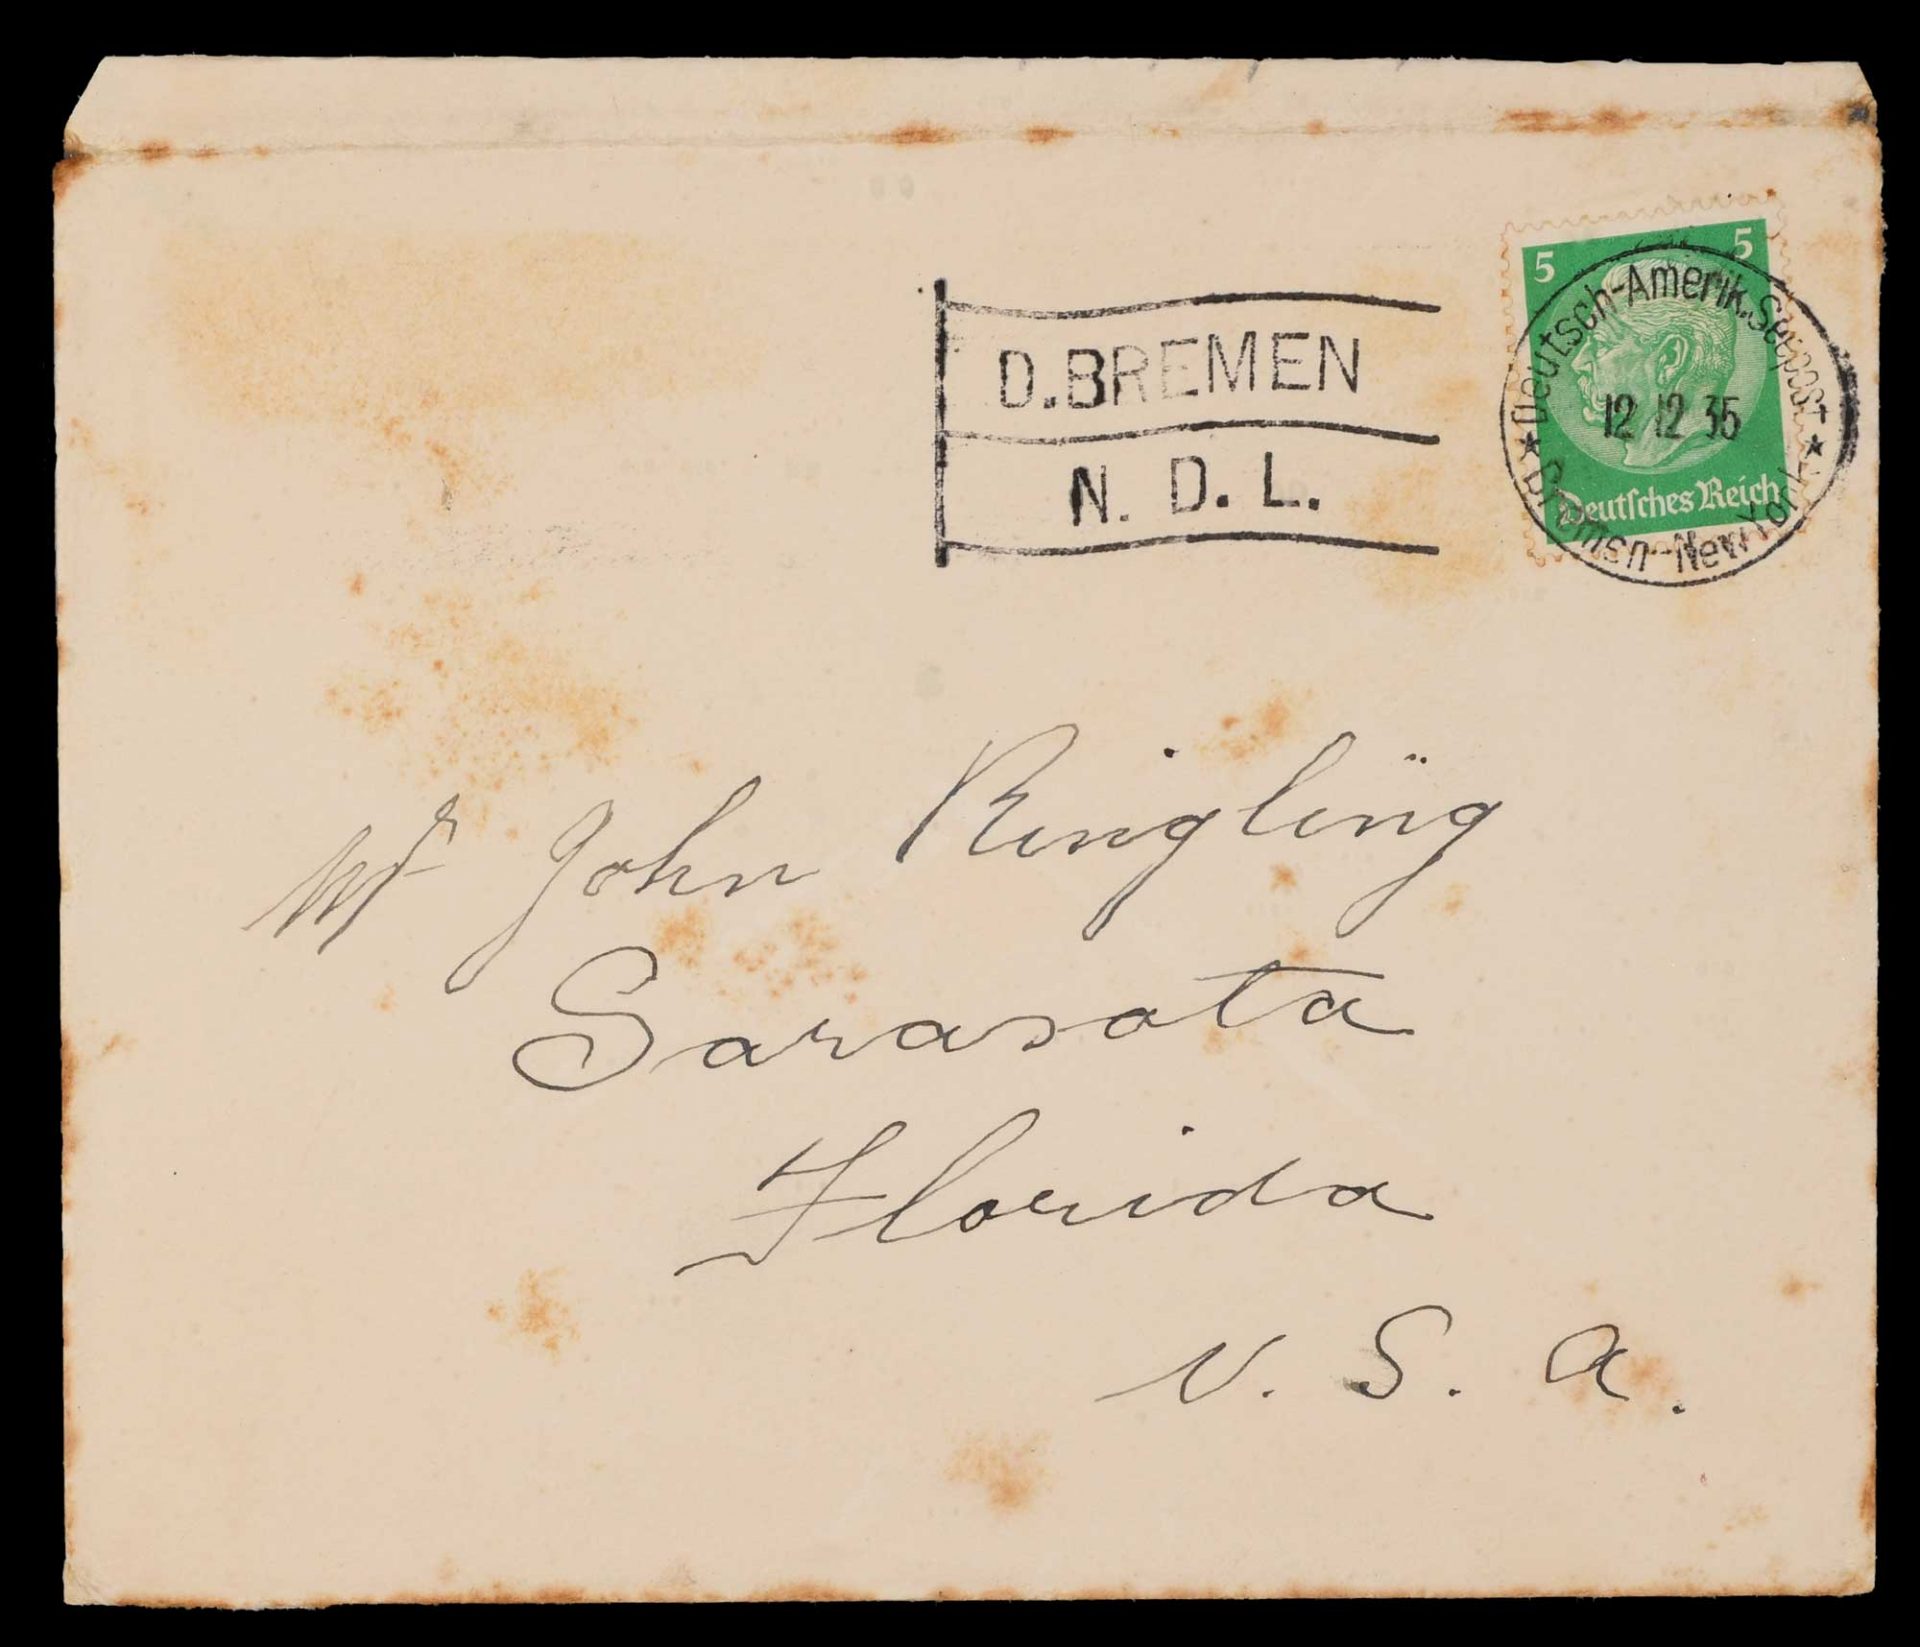 5 5
Deutsch-Amerik. Seepost
D. BREMEN
12 12 35
N. D. L.
Deutsches Reich
Bremen-New York
Mr John Ringling
Sarasota
Florida
U. S. A.